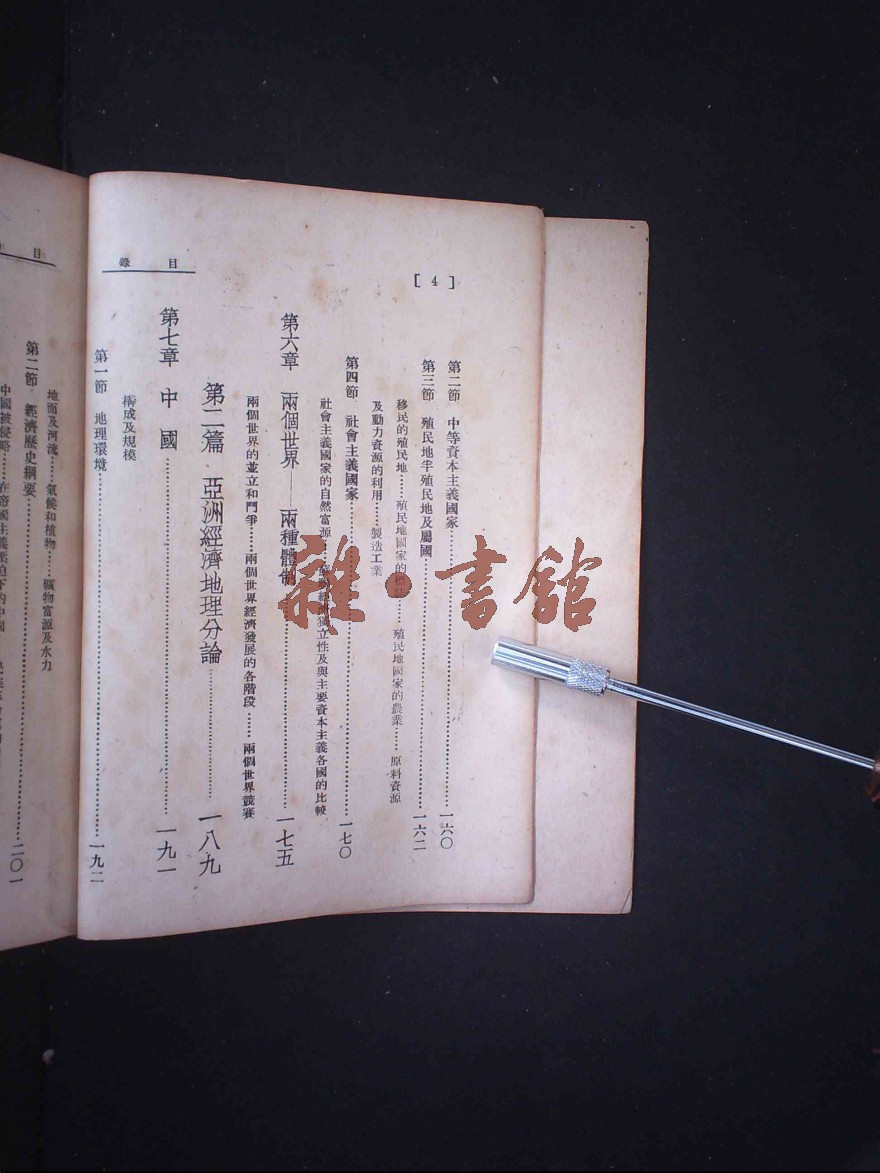 目 錄
[ 4 ]
第二節 中等資本主義國家……一六〇
第三節 殖民地半殖民地及屬國……一六二
移民的殖民地……殖民地國家的……殖民地國家的農業……原料資源
及動力資源的利用……製造工業
第四節 社會主義國家……一七〇
社會主義國家的自然富源……獨立性及與主要資本主義各國的比較
第六章 兩個世界——兩種體制……一七五
兩個世界的並立和鬥爭……兩個世界經濟發展的各階段……兩個世界競賽
第二篇 亞洲經濟地理分論……一八九
第七章 中國……一九一
構成及規模
第一節 地理環境……一九二
目
地面及河流……氣候和植物……礦物富源及水力
第二節 經濟歷史綱要……二〇一
中國被侵略……在帝國主義壓迫下的中國
雜·書館